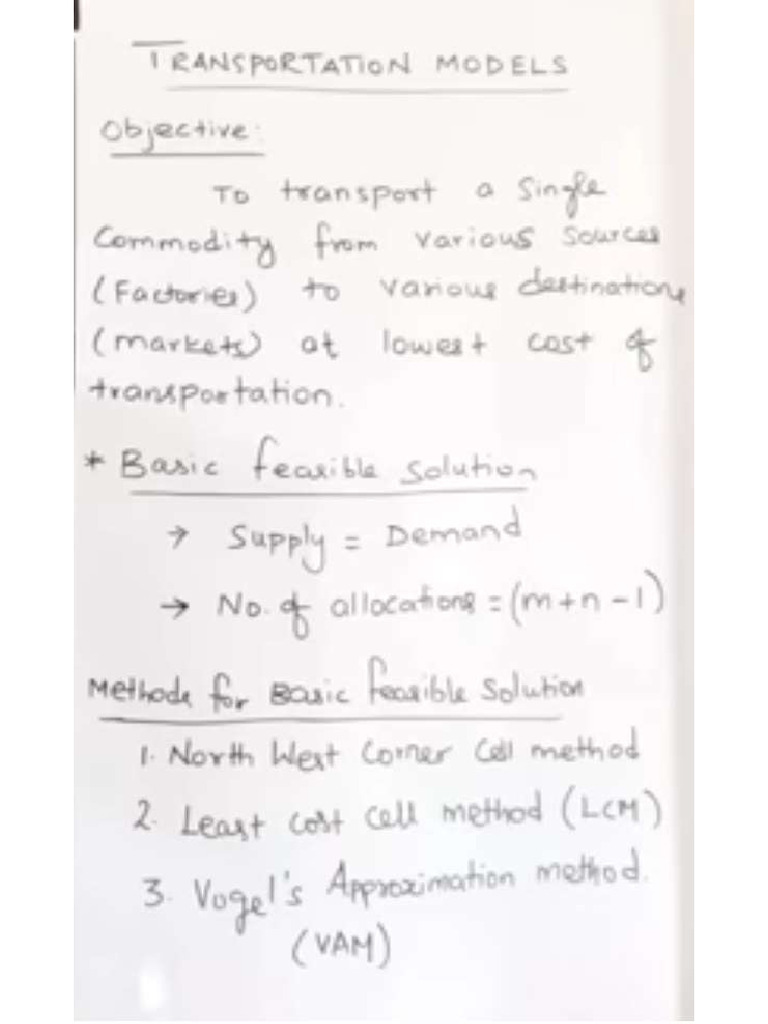 TRANSPORTATION MODELS
Objective:
To transport a Single
Commodity from various Sources
(Factories) to various destinations
(markets) at lowest cost of
transportation.
* Basic feasible Solution
→ Supply = Demand
→ No. of allocations = (m+n-1)
Methods for Basic feasible Solution
1. North West Corner Cell method
2. Least cost cell method (LCM)
3. Vogel's Approximation method.
(VAM)